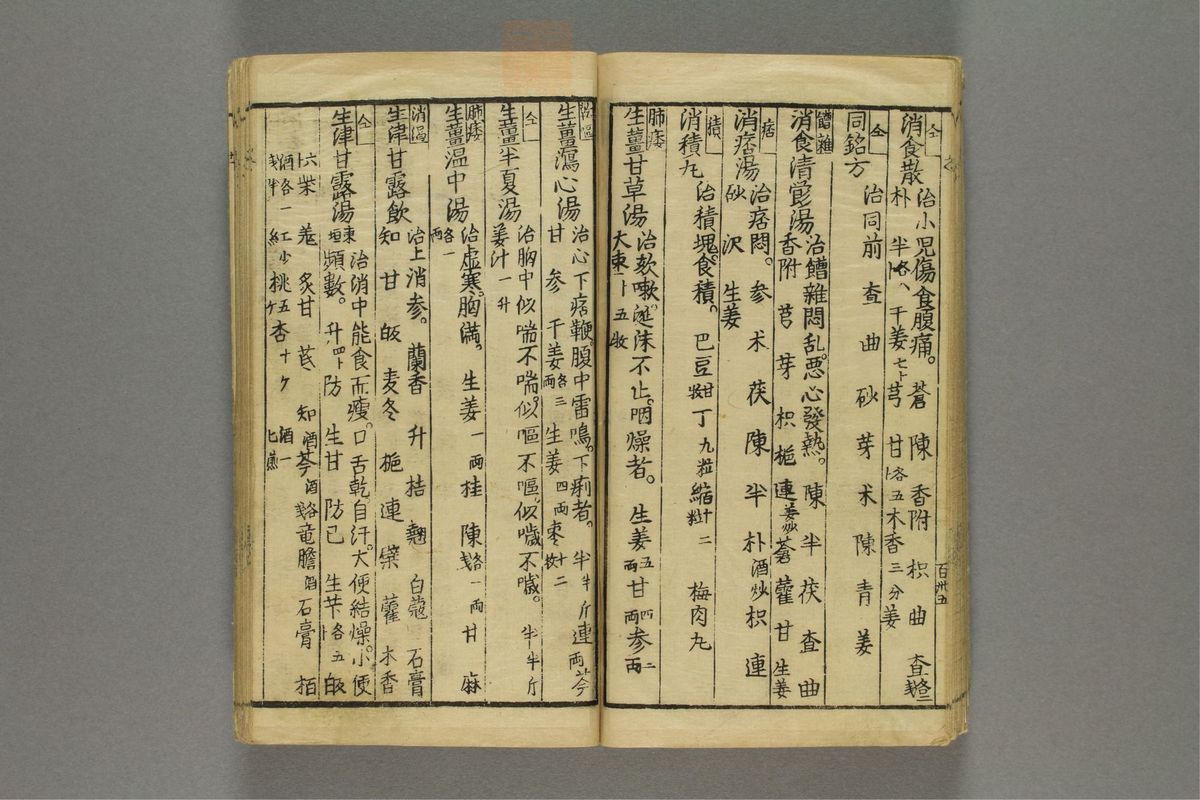 仝
消食散
治小児傷食腹痛。蒼 陳 香附 枳 曲 查各二戔
朴 半各八卜 干姜七卜 芎 甘各五卜 木香三分 姜
仝
同銘方
治同前 查 曲 砂 芽 术 陳 青 姜
饐雜
消食清欝湯
治饐雜悶乱。悪心發熱。陳 半 茯 查 曲
香附 芎 芽 枳 梔 連姜炒 蒼 藿 甘 生姜
痞
消痞湯
治痞悶。参 术 茯 陳 半 朴 酒炒 枳 連
砂 沢 生姜
積
消積丸
治積塊。食積。巴豆 丁九粒 縮 二 梅肉丸
肺痿
生薑甘草湯
治欬嗽。涎沫不止。咽燥者。生姜五両 甘四両 参二両
大棗 五枚
百卅五
生薑瀉心湯
治心下痞鞕。腹中雷鳴。下痢者。半半斤 連 両 芩
甘 参 干姜各三両 生姜四両 棗十二枚
仝
生薑半夏湯
治胸中似喘不喘。似嘔不嘔。似噦不噦。半半斤
姜汁一升
肺痿
生薑温中湯
治虚寒。胸満。生姜一両 桂 陳各一戔 両 甘 麻
各一両
消渇
生津甘露飲
治上消参。蘭香 升 桔 翹 白蔻 石膏
知 甘 皈 麦冬 梔 連 蘗 藿 木香
仝
生津甘露湯
東垣 治消中能食而瘦。口舌乾。自汗。大便結燥。小便
頻數。升四卜 防 生甘 防已 生芐各五卜 皈
六卜 柴 羗 炙甘 芪 知酒 芩酒各戔 竜膽酒 石膏 栢
酒各一戔半 紅少 桃五ケ 杏十ケ 酒一匕煎